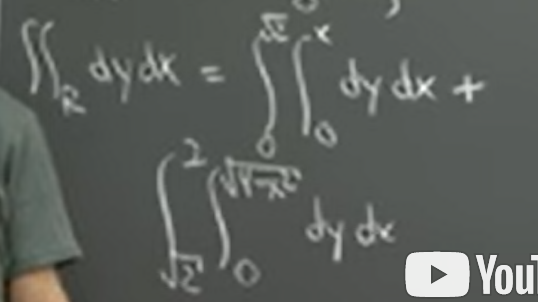 ∬_R dy dx = ∫_0^{√2} ∫_0^x dy dx +
∫_{√2}^2 ∫_0^{√(4-x²)} dy dx
YouT